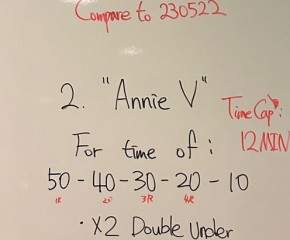 Compare to 230522
2. "Annie V"
Time Cap:
12 MIN
For time of :
50 - 40 - 30 - 20 - 10
1R 2R 3R 4R
· X2 Double Under